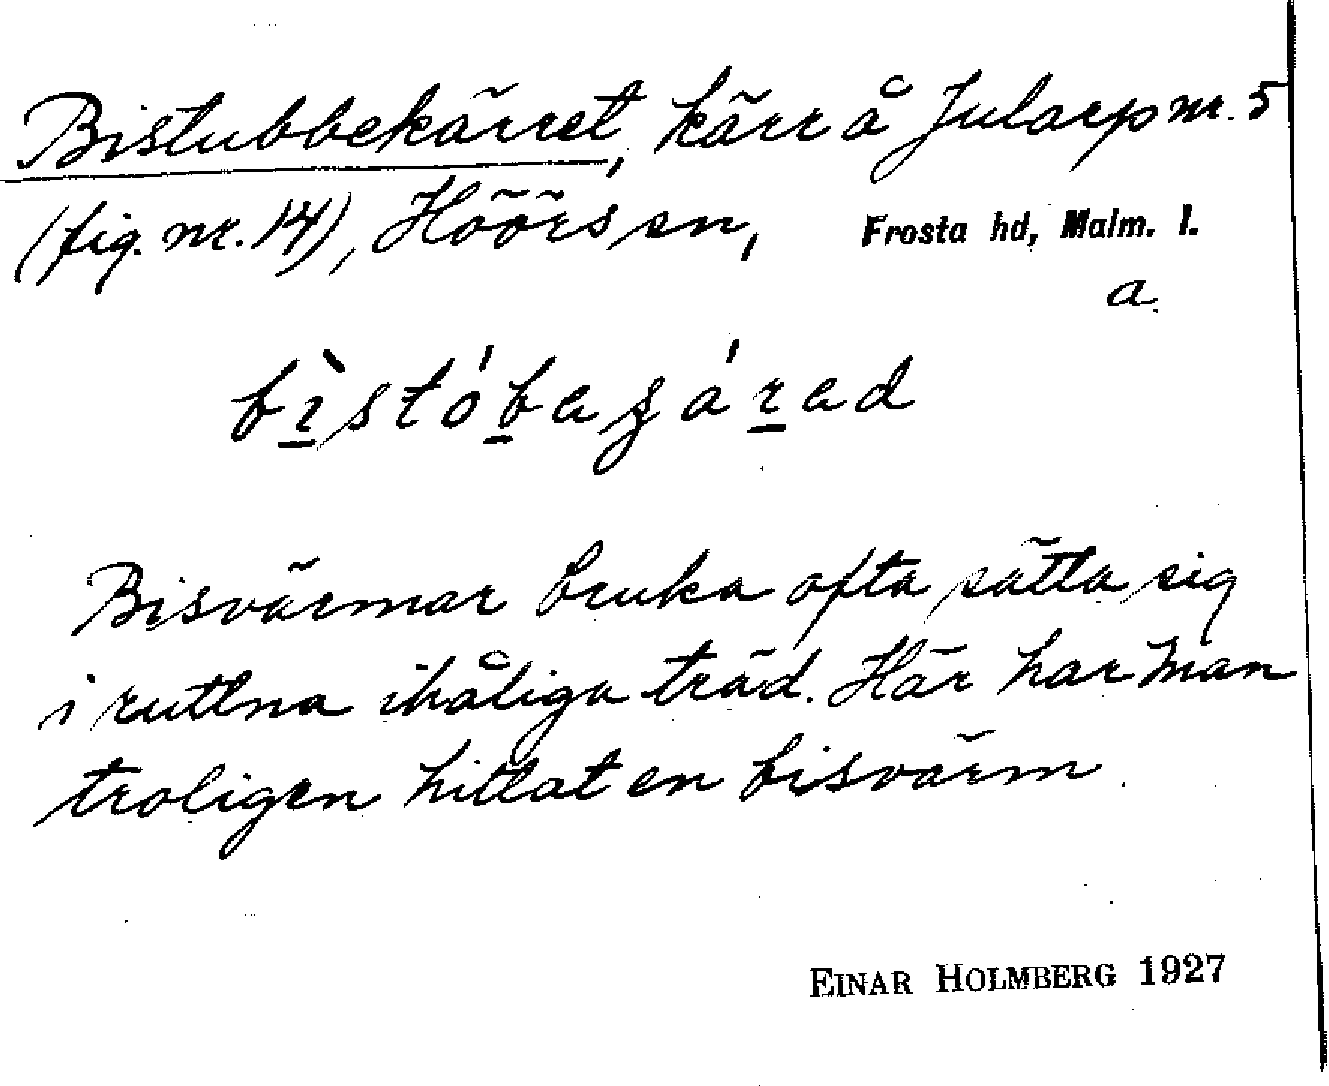 Bistubbekärret, kärr å Jularp nr. 5
(fig. nr. 14), Höörs sn, Frosta hd, Malm. l.
a.
Bisvärmar bruka ofta sätta sig
i ruttna ihåliga träd. Här har man
troligen hittat en bisvärm.
EINAR HOLMBERG 1927